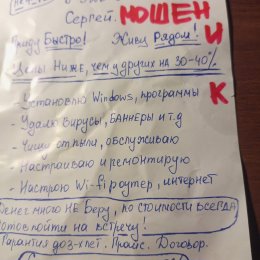 Сергей. МОШЕННИК
Приду Быстро! Живу Рядом!
Цены Ниже, чем у других на 30-40%
- Установлю Windows, программы
- Удалю вирусы, баннеры и т.д
- Чищу от пыли, обслуживаю
- Настраиваю и ремонтирую
- Настрою Wi-fi роутер, интернет
Денег много НЕ Беру, по стоимости всегда
готов пойти на встречу!
Гарантия до 3-х лет. Прайс. Договор.